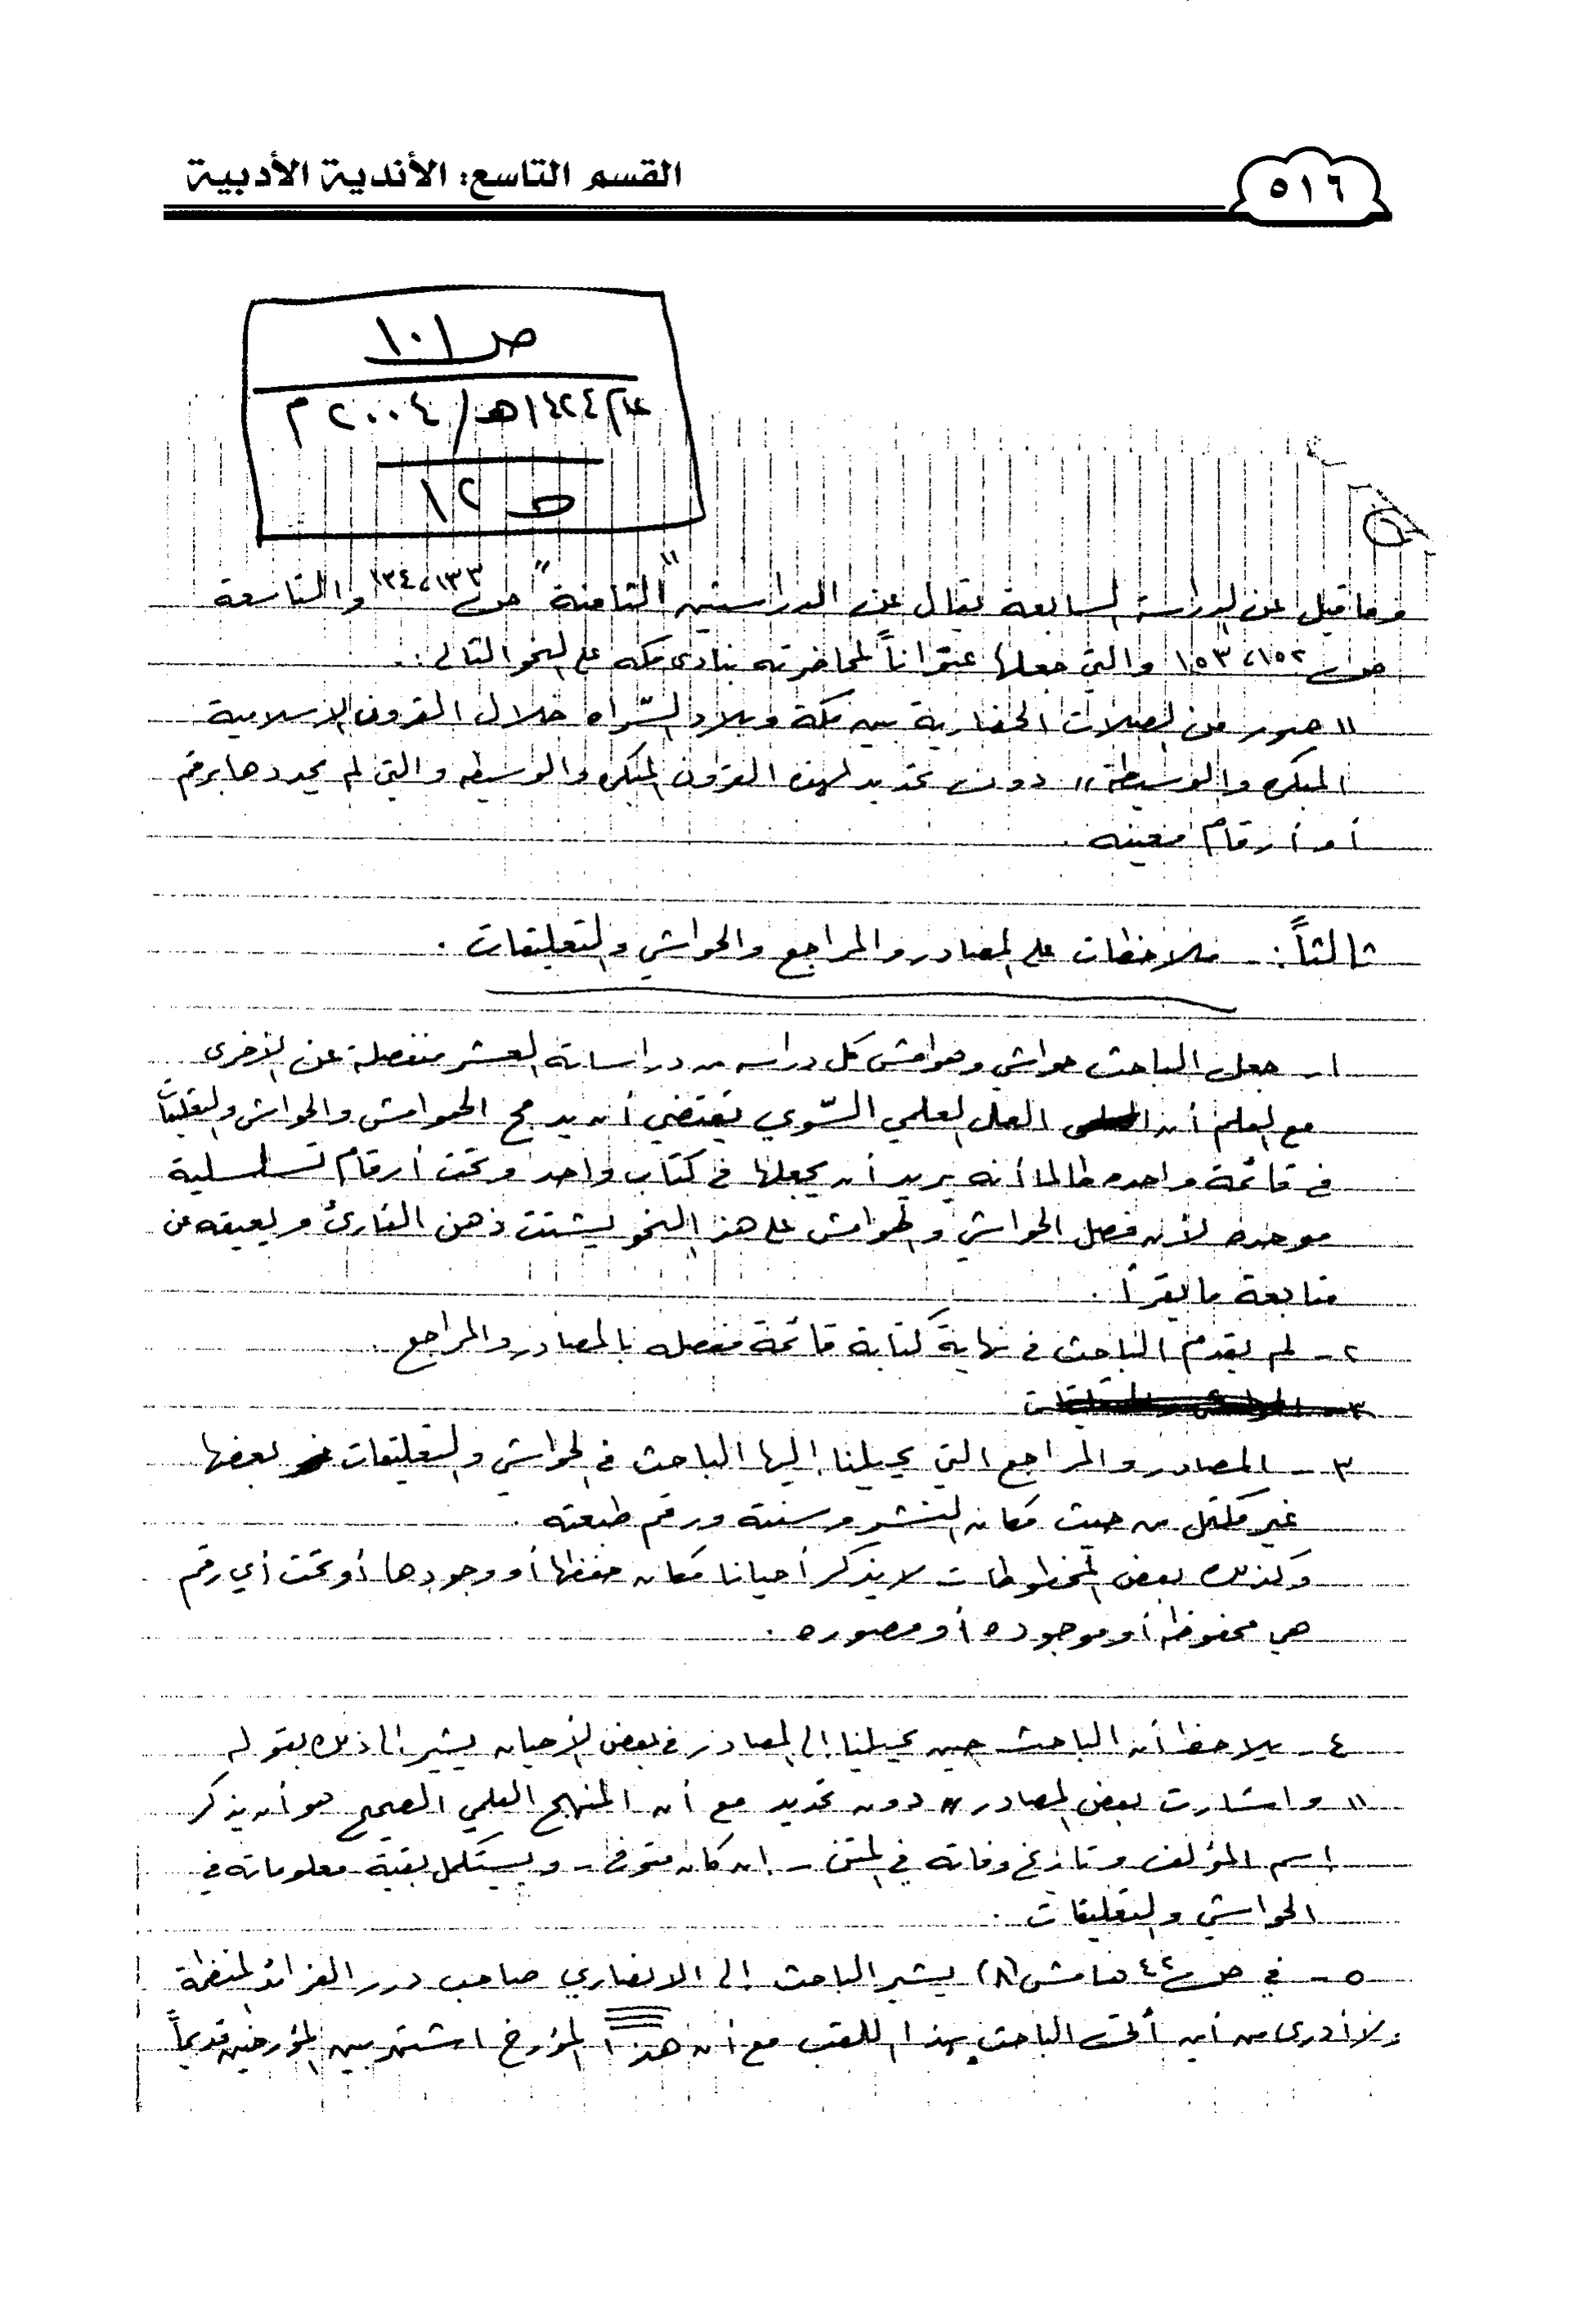 ٥١٦
القسم التاسع: الأندية الأدبية
ص ١٠١
١٤٢٤هـ / ٢٠٠٤ م
ص ١٢
وما قيل عن الدراسة السابعة يقال عن الدراستين "الثامنة" ص ١٣٣، ١٣٤ والتاسعة
ص ١٥٢، ١٥٣ والتي جعلها عنواناً لمحاضرته بنادي مكه على النحو التالي :
" صور من الصلات الحضارية بين مكة وبلاد السّراه خلال القرون الإسلامية
المبكره والوسيطة " دون تحديد لهذه القرون المبكره والوسيطه والتي لم يحددها برقم
أو أرقام معينه .
ثالثاً : ملاحظات على المصادر والمراجع والحواشي والتعليقات .
١ - جعل الباحث حواشي وهوامش كل دراسه من دراساته العشر منفصلة عن الأخرى
مع العلم أن العمل العلمي السّوي يقتضي أن يدمج الهوامش والحواشي والتعليقات
في قائمة واحده طالما أنه يريد أن يجعلها في كتاب واحد وتحت أرقام تسلسلية
موحده لأن فصل الحواشي والهوامش على هذا النحو يشتت ذهن القارئ ويعيقه عن
متابعة ما يقرأ .
٢ - لم يقدم الباحث في نهاية كتابة قائمة مفصله بالمصادر والمراجع .
٣ -
٣ - المصادر والمراجع التي يحيلنا إليها الباحث في الحواشي والتعليقات بعضها
غير مكتمل من حيث مكان النشر وسنته ورقم طبعته .
وكذلك بعض المخطوطات لا يذكر أحيانا مكان حفظها أو وجودها أو تحت أي رقم
هي محفوظه أو موجوده أو مصوره .
٤ - يلاحظ أن الباحث حين يحيلنا إلى المصادر في بعض الأحيان يشير إلى ذلك بقوله
" واشارت بعض المصادر " دون تحديد مع أن المنهج العلمي الصحيح هو أن يذكر
اسم المؤلف وتاريخ وفاته في المتن - إن كان متوفى - ويستكمل بقية معلوماته في
الحواشي والتعليقات .
٥ - في ص ٤٢ هامش (٨) يشير الباحث إلى الانصاري صاحب درر الفرائد المنظمة
ولا أدري من أين أتى الباحث بهذا اللقب مع أن هذا المؤرخ اشتهر بين المؤرخين قديماً